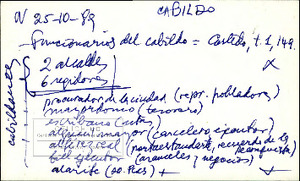 N 25-10-89
CABILDO
- Funcionarios del cabildo = Castillo, t.1, 149.
2 alcaldes
6 regidores
cabildantes
procurador de la ciudad (repr. pobladores)
mayordomo (tesorero)
escribano (actas)
alguacil mayor (carcelero, ejecutor)
alférez real (portaestandarte, recuerdo de la
fiel ejecutor (aranceles y negocios)
alarife (oo. pcs) +